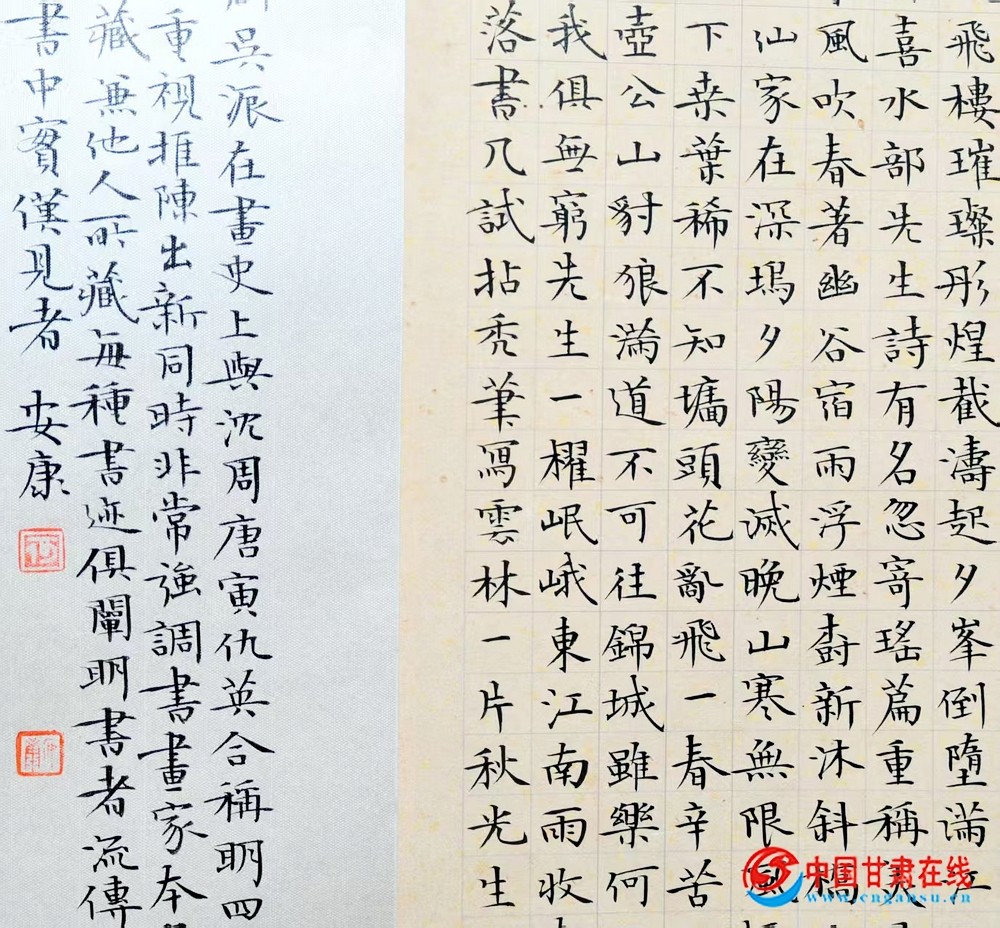 飛樓璀璨彤煌截濤起夕峯倒墮满
喜水部先生詩有名忽寄瑤篇重稱
風吹春著幽谷宿雨浮煙樹新沐斜橋
仙家在深塢夕陽變滅晚山寒無限風
下桒葉稀不知墻頭花亂飛一春辛苦
壺公山豺狼满道不可往錦城雖樂何
我俱無窮先生一櫂岷峨東江南雨收
落書几試拈秃筆寫雲林一片秋光生
吳派在畫史上與沈周唐寅仇英合稱明四
重視推陳出新同時非常強調書畫家本
藏兼他人所藏每種書迹俱闡明書者流傳
書中實僅見者 安康
中国甘肃在线
www.cngansu.cn